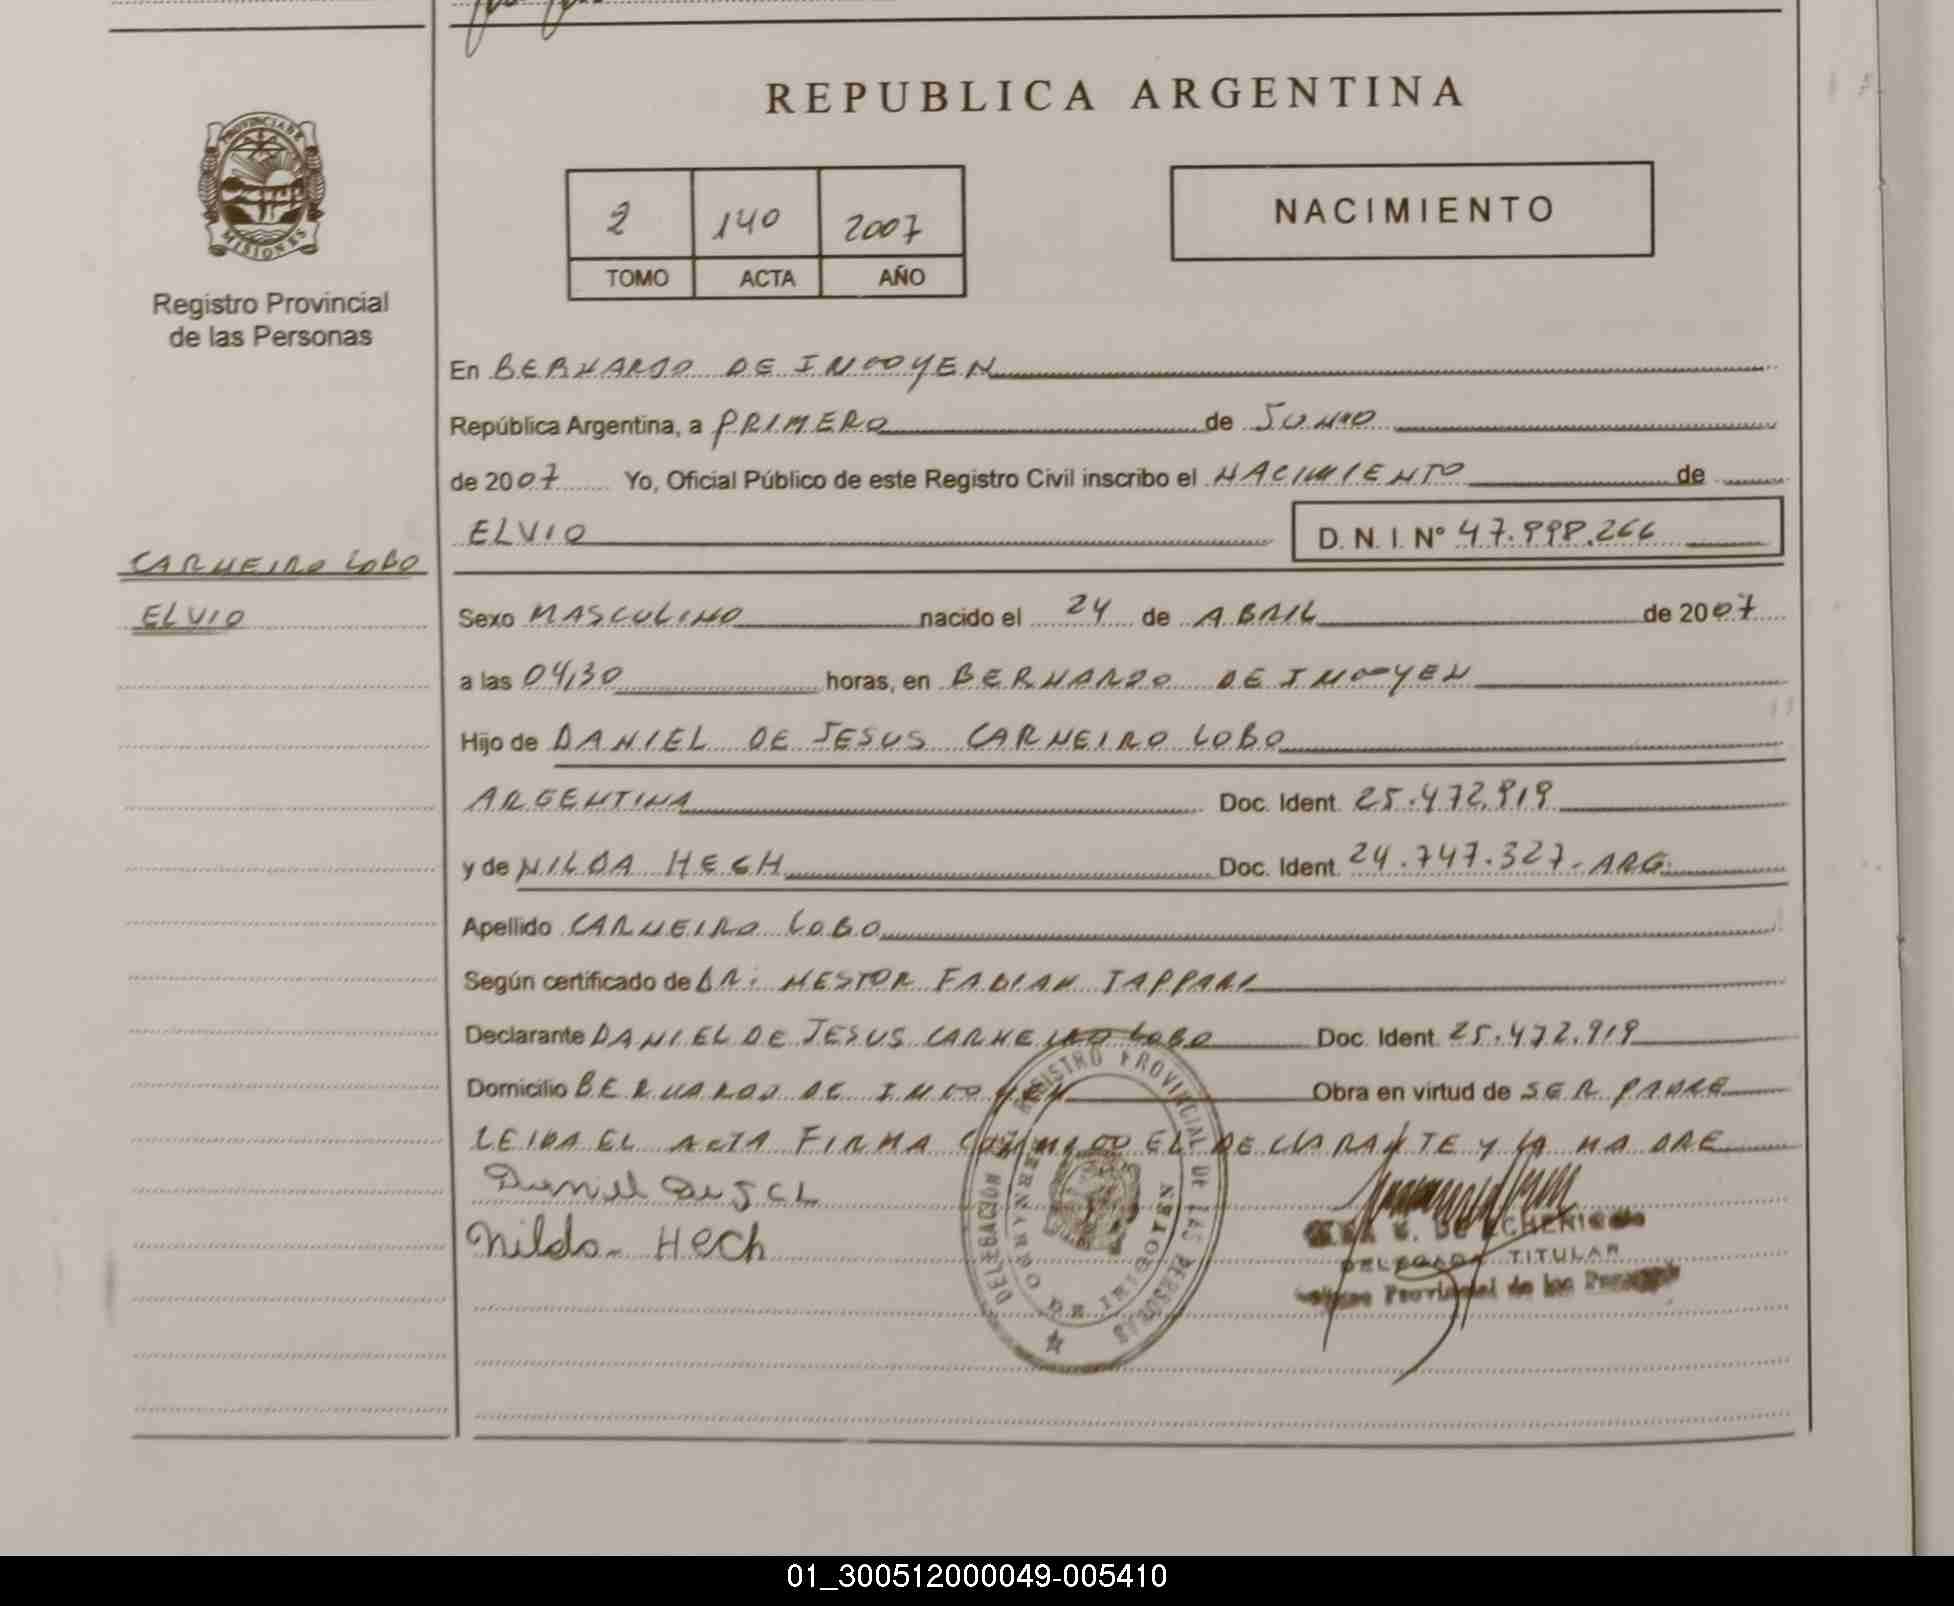 REPUBLICA ARGENTINA
PROVINCIA DE
MISIONES
Registro Provincial
de las Personas
2 140 2007
TOMO ACTA AÑO
NACIMIENTO
En BERNARDO DE IRIGOYEN
República Argentina, a PRIMERO de JUNIO
de 2007 Yo, Oficial Público de este Registro Civil inscribo el NACIMIENTO de
ELVIO D. N. I. Nº 47.998.266
CARNEIRO LOBO
ELVIO
Sexo MASCULINO nacido el 24 de ABRIL de 2007
a las 04,30 horas, en BERNARDO DE IRIGOYEN
Hijo de DANIEL DE JESUS CARNEIRO LOBO
ARGENTINA Doc. Ident. 25.472.919
y de NILDA HECH Doc. Ident. 24.747.327-ARG.
Apellido CARNEIRO LOBO
Según certificado de DR: NESTOR FABIAN TAPPARI
Declarante DANIEL DE JESUS CARNEIRO LOBO Doc. Ident. 25.472.919
Domicilio BERNARDO DE IRIGOYEN Obra en virtud de SER PADRE
LEIDA EL ACTA FIRMA CONMIGO EL DECLARANTE Y LA MADRE
Daniel De J C L
Nilda Hech
DELEGACION REGISTRO PROVINCIAL DE LAS PERSONAS
BERNARDO DE IRIGOYEN
DE ECHENIQUE
DELEGADA TITULAR
Provincial de las Personas
01_300512000049-005410